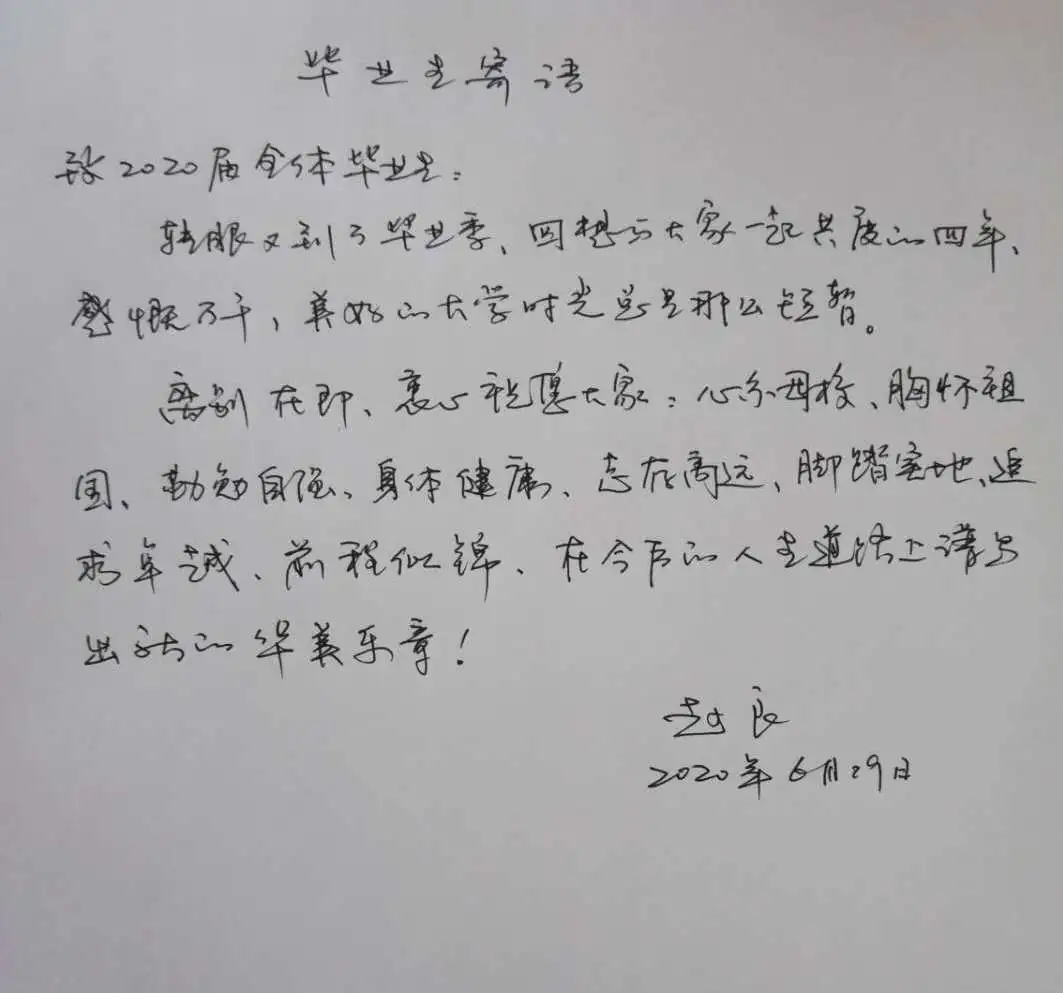 毕业生寄语
致2020届全体毕业生：
转眼又到了毕业季、回想与大家一起共度的四年、
感慨万千，美好的大学时光总是那么短暂。
离别在即、衷心祝愿大家：心系母校、胸怀祖
国、勤勉自强、身体健康、志存高远、脚踏实地、追
求卓越、前程似锦、在今后的人生道路上谱写
出新的华美乐章！
赵良
2020年6月29日